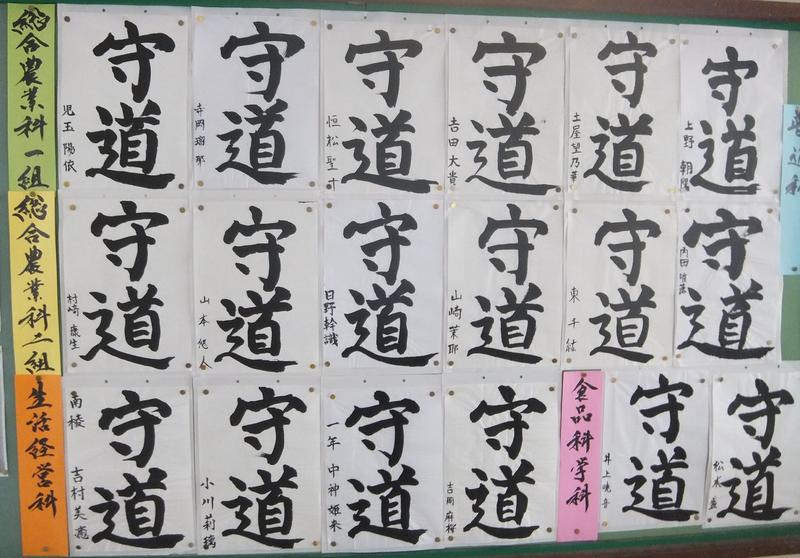 総合農業科一組
守道
児玉陽依
守道
寺岡瑠那
守道
恒松聖士
守道
吉田大貴
守道
土屋望乃華
守道
上野朝陽
総合農業科二組
守道
村崎康生
守道
山本悠人
守道
日野幹識
守道
山崎茉耶
守道
東千紘
守道
内田
生活経営科
守道
南稜
吉村美
守道
小川莉璃
守道
一年中神姫来
守道
吉岡麻桜
食品科学科
守道
井上暁音
守道
松本